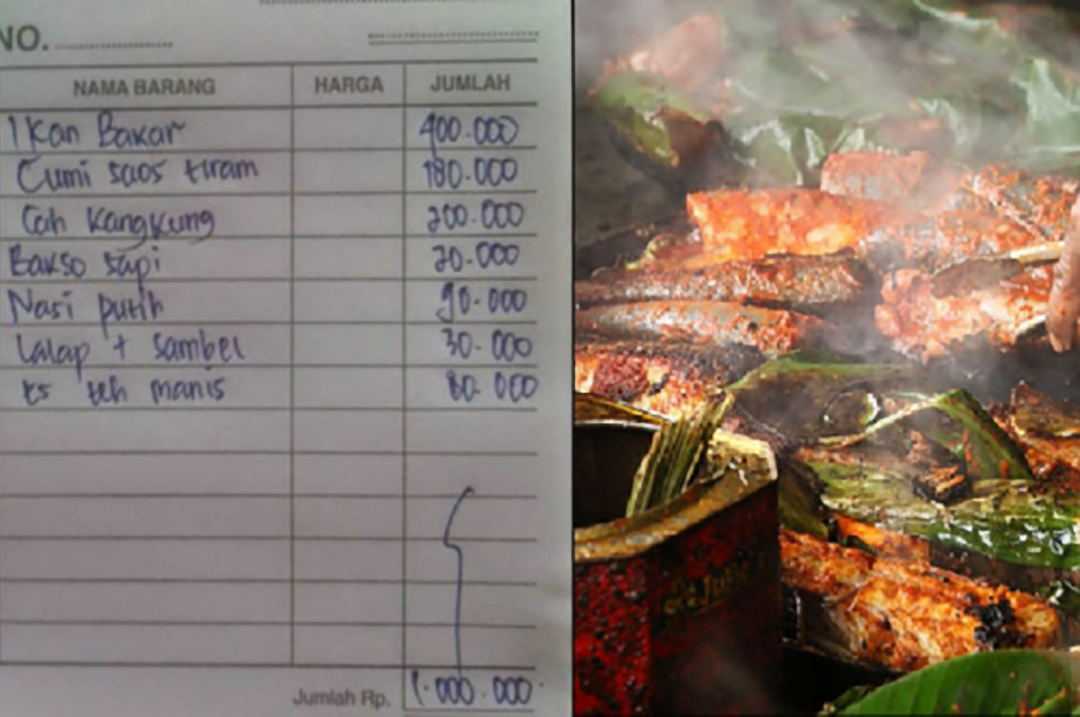 NO. ....................
NAMA BARANG HARGA JUMLAH
Ikan Bakar 400.000
Cumi saos tiram 180.000
Cah Kangkung 200.000
Bakso sapi 20.000
Nasi putih 90.000
Lalap + sambel 30.000
Es teh manis 80.000
Jumlah Rp. 1.000.000